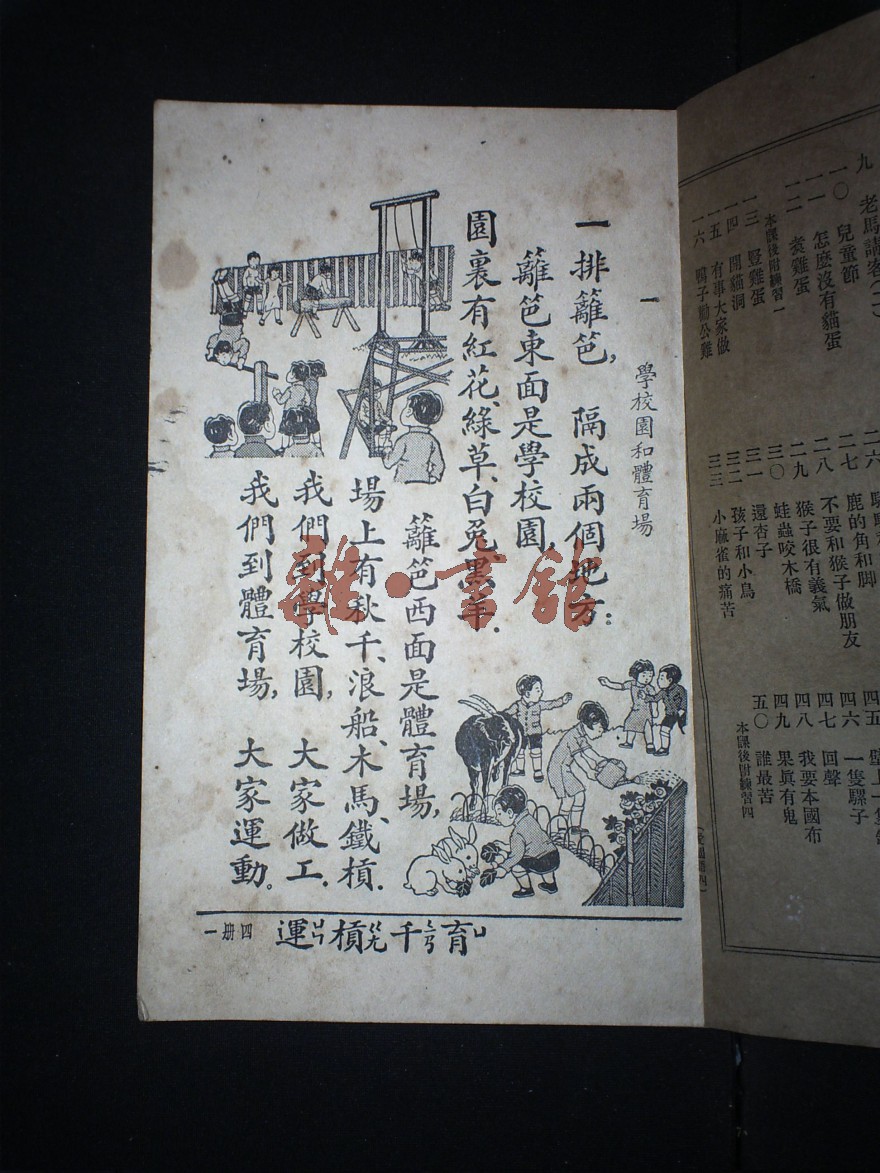 一 學校園和體育場
一排籬笆， 隔成兩個地方：
籬笆東面是學校園，
園裏有紅花、綠草、白兔、黑羊．
籬笆西面是體育場，
場上有秋千、浪船、木馬、鐵槓．
我們到學校園， 大家做工．
我們到體育場， 大家運動。
育ㄩ千ㄑㄧㄢ槓ㄍㄤ運ㄩㄣ
四册 一
雜·書館
九 老馬請客(二)
一〇 兒童節
一一 怎麼沒有貓蛋
一二 煮雞蛋
本課後附練習一
一三 豎雞蛋
一四 開貓洞
一五 有事大家做
一六 鴨子勸公雞
二七 鹿的角和脚
二八 不要和猴子做朋友
二九 猴子很有義氣
三〇 蛙蟲咬木橋
三一 還杏子
三二 孩子和小鳥
三三 小麻雀的痛苦
四六 一隻騾子
四七 回聲
四八 我要本國布
四九 果真有鬼
五〇 誰最苦
本課後附練習四